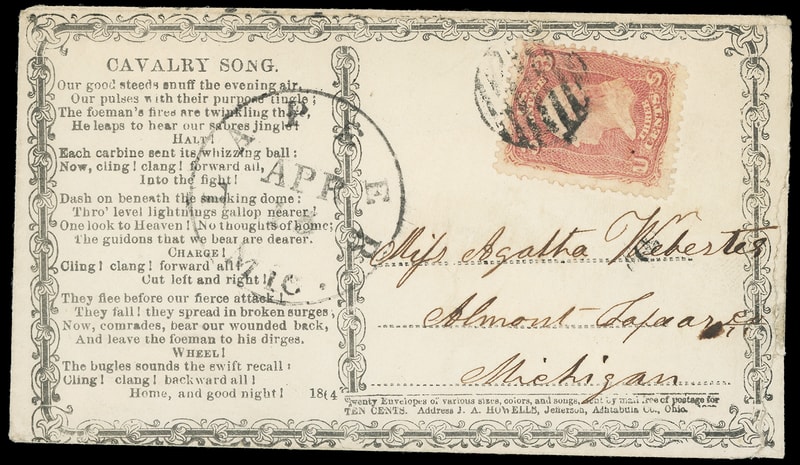 CAVALRY SONG.
Our good steeds snuff the evening air,
Our pulses with their purpose tingle;
The foeman's fires are twinkling there;
He leaps to hear our sabres jingle!
HALT!
Each carbine sent its whizzing ball:
Now, cling! clang! forward all,
Into the fight!
Dash on beneath the smoking dome:
Thro' level lightnings gallop nearer!
One look to Heaven! No thoughts of home;
The guidons that we bear are dearer.
CHARGE!
Cling! clang! forward all!
Cut left and right!
They flee before our fierce attack!
They fall! they spread in broken surges,
Now, comrades, bear our wounded back,
And leave the foeman to his dirges.
WHEEL!
The bugles sounds the swift recall:
Cling! clang! backward all!
Home, and good night! 1864
LAPEER
APR
MIC.
Miss Agatha
Almont Lapeer Co
Michigan
Twenty Envelopes of various sizes, colors, and songs, sent by mail free of postage for
TEN CENTS. Address J. A. HOWELLS, Jefferson, Ashtabula Co., Ohio.